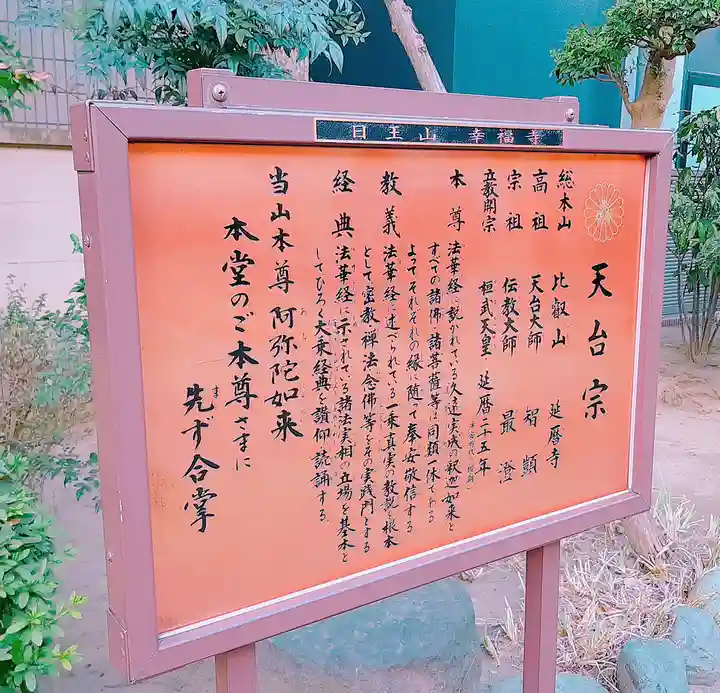 日王山 幸福寺
天台宗
総本山 比叡山 延暦寺
高祖 天台大師 智顗
宗祖 伝教大師 最澄
立教開宗 桓武天皇 延暦二十五年
本尊 法華経に説かれている久遠実成の釈迦如来と
すべての諸佛、諸菩薩等は同類一体である
よってそれぞれの縁に随って奉安敬信する
教義 法華経に述べられている一乗真実の教説を根本
として密教、禅法、念佛等をその実践門とする
経典 法華経に示されている諸法実相の立場を基本と
してひろく大乗経典を讃仰読誦する
当山本尊 阿弥陀如来
本堂のご本尊さまに
先ず合掌